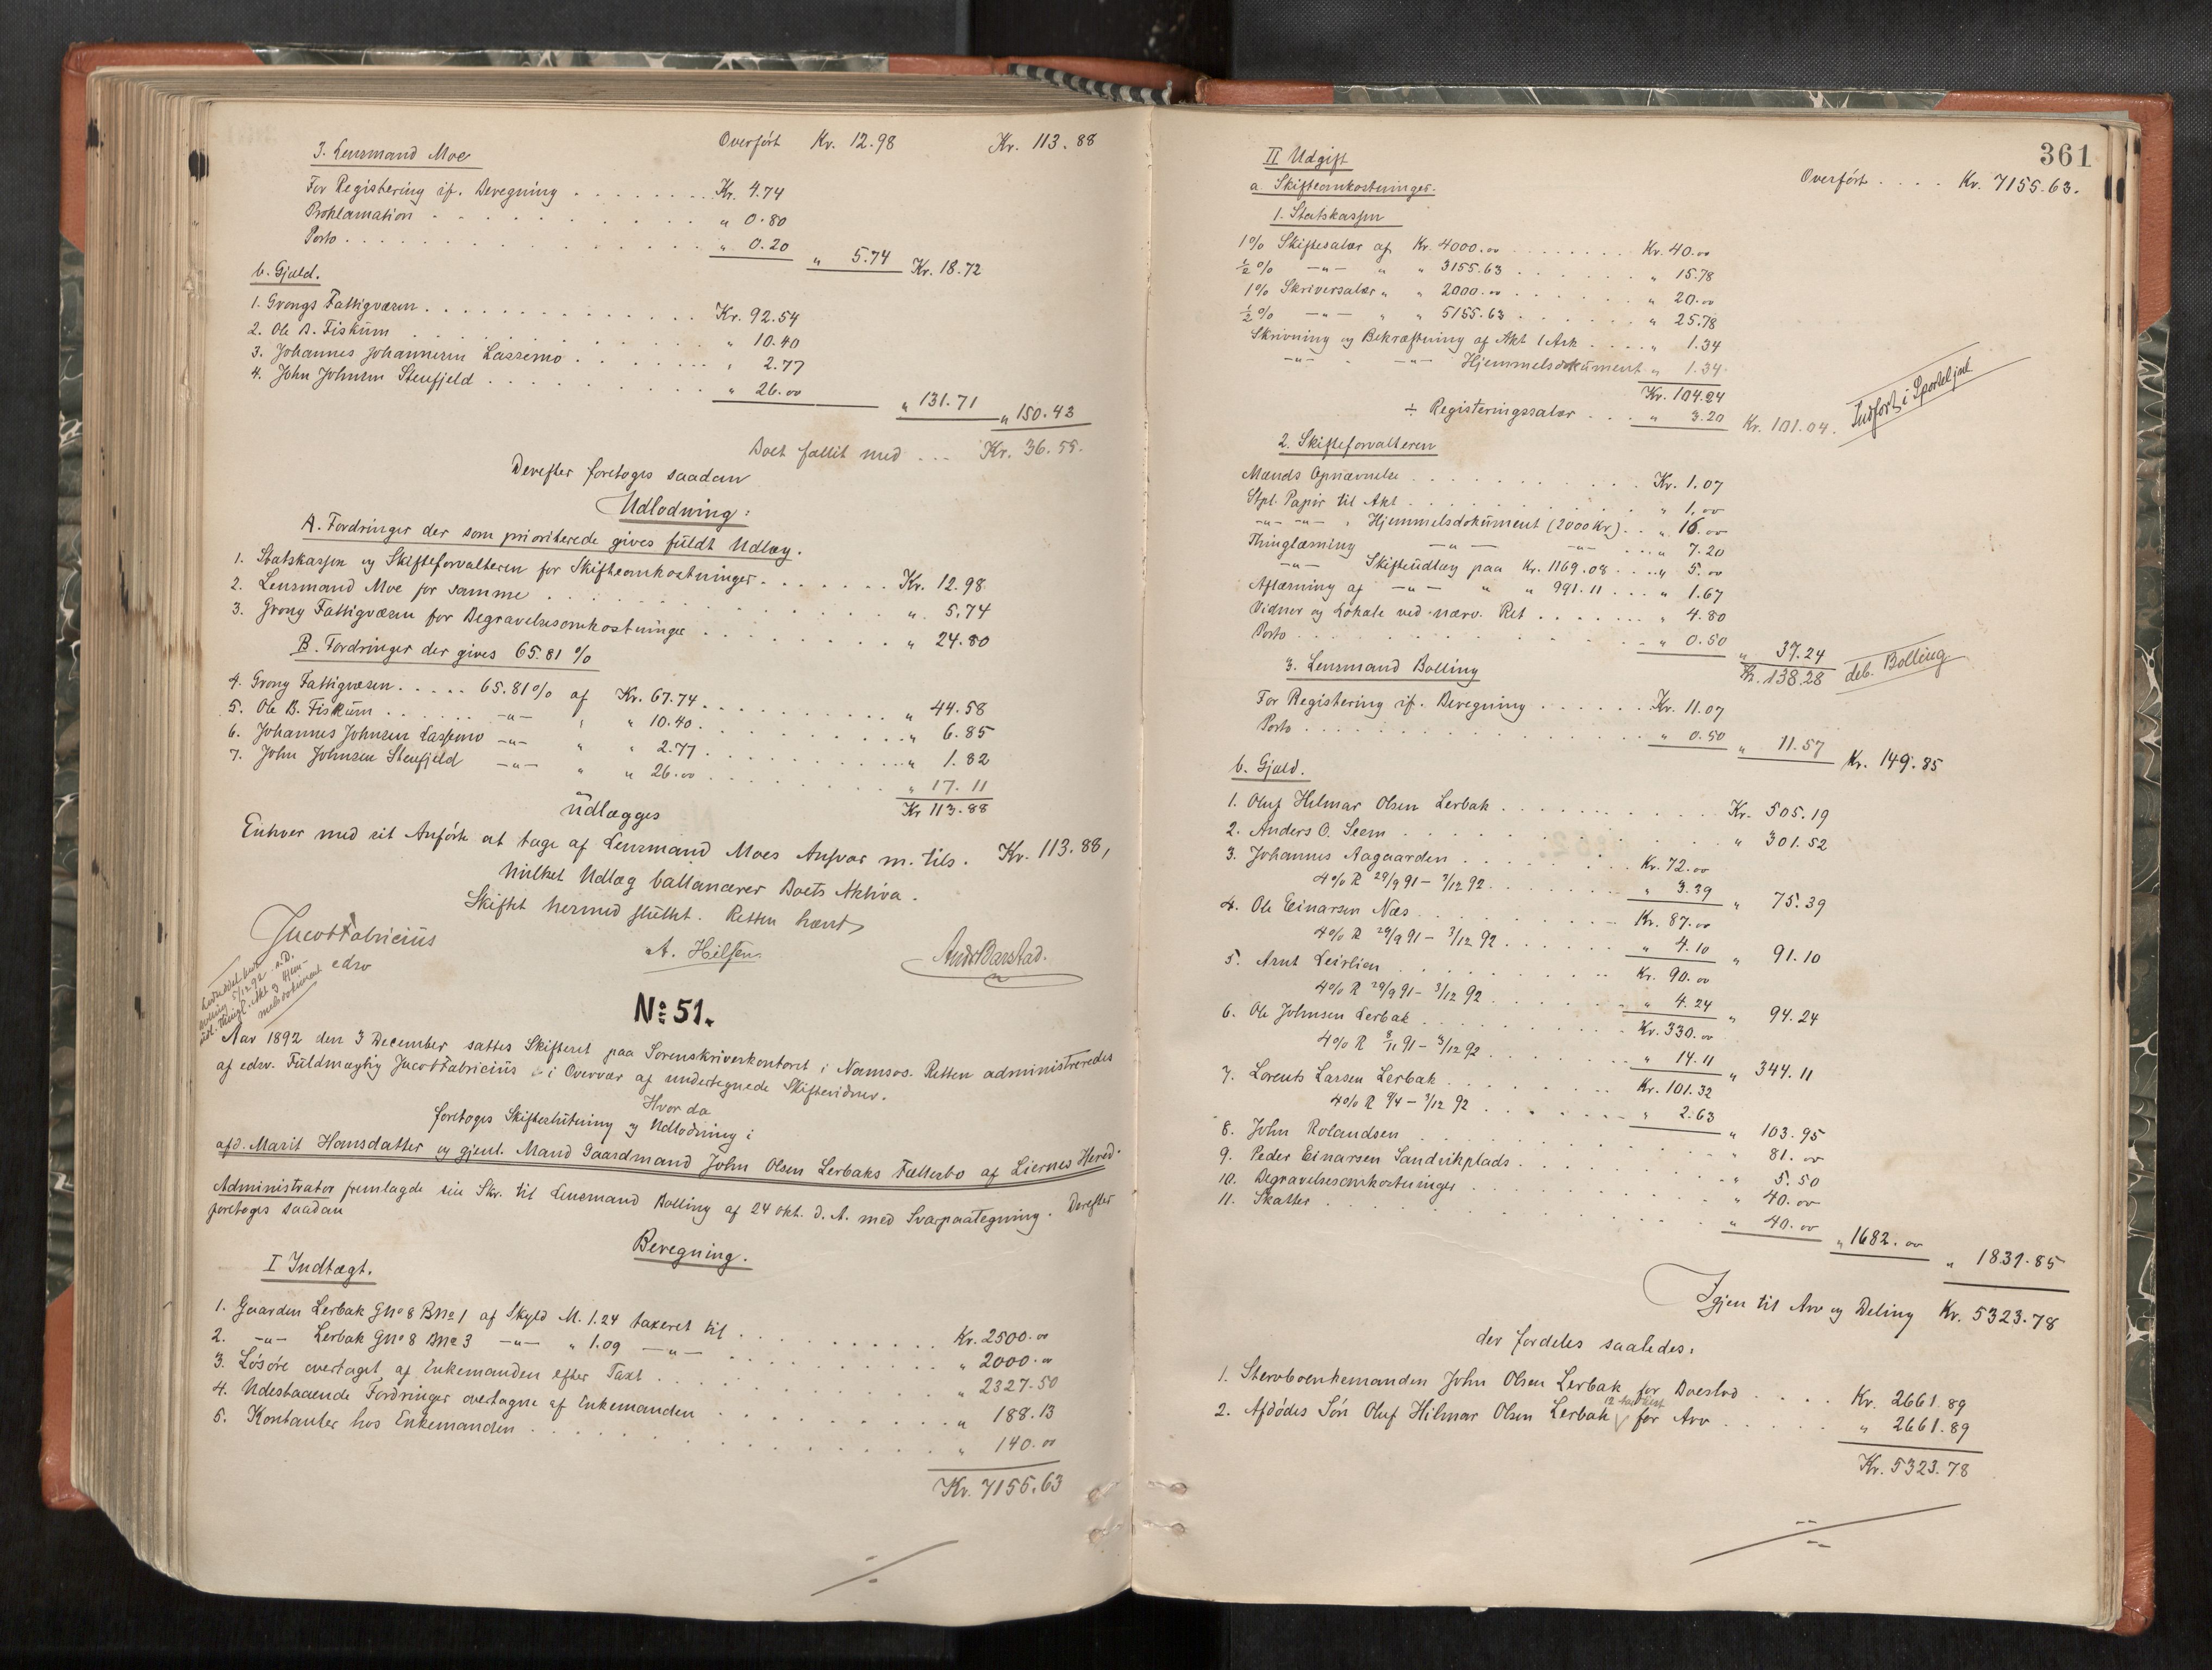 Overført Kr. 12.98 Kr. 113.88
3. Lensmand Moe
For Registering if. Beregning . . . . . . . Kr. 4.74
Proklamation . . . . . . . . . . . " 0.80
Porto . . . . . . . . . . . . . . " 0.20 " 5.74 Kr. 18.72
b. Gjæld.
1. Grongs Fattigvæsen . . . . . . . . . . . . Kr. 92.54
2. Ole B. Fiskum . . . . . . . . . . . " 10.40
3. Johannes Johannesen Lassemo . . . . . . " 2.77
4. John Johnsen Stenfjeld . . . . . . . . . " 26.00 " 131.71 " 150.43
Boet fallit med . . . Kr. 36.55.
Derefter foretoges saadan
Udlodning:
A. Fordringer der som prioriterede gives fuldt Udlæg.
1. Statskassen og Skifteforvalteren for Skifteomkostninger . . . . . . . Kr. 12.98
2. Lensmand Moe for samme . . . . . . . . . . . " 5.74
3. Grong Fattigvæsen for Begravelsesomkostninger . . . . . . . . " 24.80
B. Fordringer der gives 65.81 %
4. Grong Fattigvæsen . . . . . 65.81% af Kr. 67.74 . . . . . . . . . " 44.58
5. Ole B. Fiskum . . . . . . -"- " " 10.40 . . . . . . . . . " 6.85
6. Johannes Johnsen Lassemo -"- " " 2.77 . . . . . . . . . " 1.82
7. John Johnsen Stenfjeld -"- " " 26.00 . . . . . . . . . " 17.11
Udlægges Kr 113.88
Enhver med sit Anførte at tage af Lensmand Moes Ansvar m. tils. Kr. 113.88,
hvilket Udlæg ballancerer Boets Aktiva.
Skiftet hermed sluttet. Retten hævet
Jacob Fabricius
edsv
A. Hilsen.
And. Barstad.
5/12 92 s.D.
No 51.
Aar 1892 den 3 December sattes Skifteret paa Sorenskriverkontoret i Namsos. Retten administreredes
af edsv. Fuldmægtig Jacob Fabricius i Overvær af undertegnede Skiftevidner.
Hvor da
foretoges Skifteslutning og Udlodning i
afd. Marit Hansdatter og gjenl. Mand Gaardmand John Olsen Lerbaks Fællesbo af Liernes Hered.
Administrator fremlagde sin Skr. til Lensmand Bolling af 24 okt. d. A. med Svarpaategning. Derefter
foretoges saadan
Beregning.
I Indtægt.
1. Gaarden Lerbak GNo 8 BNo 1 af Skyld M. 1.24 taxeret til . . . . . . . . . . Kr. 2500.00
2. -"- Lerbak GNo 8 BNo 3 -"- " 1.09 -"- . . . . . . . . . . " 2000.00
3. Løsøre overtaget af Enkemanden efter Taxt . . . . . . . . . . " 2327.50
4. Udestaaende Fordringer overtagne af Enkemanden . . . . . . . . . " 188.13
5. Kontanter hos Enkemanden . . . . . . . . . . . . . " 140.00
Kr. 7155.63
361
Overført . . . . Kr. 7155.63.
II Udgift
a. Skifteomkostninger.
1. Statskassen
1% Skiftesalær af Kr. 4000.00 . . . . . . . Kr. 40.00
½% -"- " " 3155.63 . . . . . . " 15.78
1% Skriversalær " " 2000.00 . . . . . . " 20.00
½% -"- " " 5155.63 . . . . . . " 25.78
Skrivning og Bekræftning af Akt 1 Ark . . . . " 1.34
-"- -"- Hjemmelsdokument " 1.34
Kr. 104.24
÷ Registeringssalær . . . " 3.20 Kr. 101.04. Indført i Sporteljnl
2. Skifteforvalteren
Mænds Opnævnelse . . . . . . . . . . . Kr. 1.07
Stpl. Papir til Akt . . . . . . . . . . . " 1.00
-"- -"- " Hjemmelsdokument (2000 Kr.) . . " 16.00
Thinglæsning -"- -"- . . . " 7.20
-"- Skifteudlæg paa Kr. 1169.08 . . . " 5.00
Aflæsning af -"- " " 991.11 . . . " 1.67
Vidner og Lokale ved nærv. Ret . . . . . . . " 4.80
Porto . . . . . . . . . . . . . . " 0.50 " 37.24
Kr. 138.28 deb. Bolling
3. Lensmand Bolling
For Registering if. Beregning . . . . . . Kr. 11.07
Porto . . . . . . . . . . . . . . " 0.50 " 11.57 Kr. 149.85
b. Gjæld.
1. Oluf Hilmar Olsen Lerbak . . . . . . . . . . Kr. 505.19
2. Anders O. Seem . . . . . . . . . . . " 301.52
3. Johannes Aagaarden . . . . . . . . Kr. 72.00
4% R 29/9 91 – 3/12 92 . . . . . . . " 3.39 " 75.39
4. Ole Einarsen Næs . . . . . . . . . Kr. 87.00
4% R 29/9 91 – 3/12 92 . . . . . . " 4.10 " 91.10
5. Arnt Leirlien . . . . . . . . . . Kr. 90.00
4% R 29/9 91 – 3/12 92 . . . . . . " 4.24 " 94.24
6. Ole Johnsen Lerbak . . . . . . . . . Kr. 330.00
4% R 8/11 91 – 3/12 92 . . . . . . " 14.11 " 344.11
7. Lorents Larsen Lerbak . . . . . . . . Kr. 101.32
4% R 9/4 – 3/12 92 . . . . . . " 2.63 " 103.95
8. John Rolandsen . . . . . . . . . . . " 81.00
9. Peder Einarsen Sandvikplads . . . . . . . . " 5.50
10. Begravelsesomkostninger . . . . . . . . . " 40.00
11. Skatter . . . . . . . . . . . . . " 40.00 " 1682.00 " 1831.85
Igjen til Arv og Deling Kr. 5323.78
der fordeles saaledes:
1. Stervboenkemanden John Olsen Lerbak for Boeslod . . . . Kr. 2661.89
2. Afdødes Søn Oluf Hilmar Olsen Lerbak for Arv . . . . . " 2661.89
Kr. 5323.78